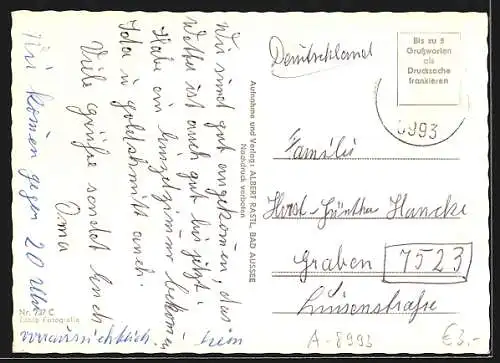 Wir sind gut angekommen, das
Wetter ist auch gut bis jetzt.
Habe ein Einzelzimmer bekommen
Ida u goldschmitt auch.
Viele grüße sendet Euch
Oma
Wir komen gegen 20 Uhr
voraussichtlich. heim
Nr. 737 C
Echte Fotografie
Aufnahme und Verlag: ALBERT RASTL, BAD AUSSEE
Nachdruck verboten
Deutschland
Bis zu 5
Grußworten
als
Drucksache
frankieren
8993
Familie
Horst-Günther Hancke
Graben 7523
Luisenstraße
A-8993
€3.-